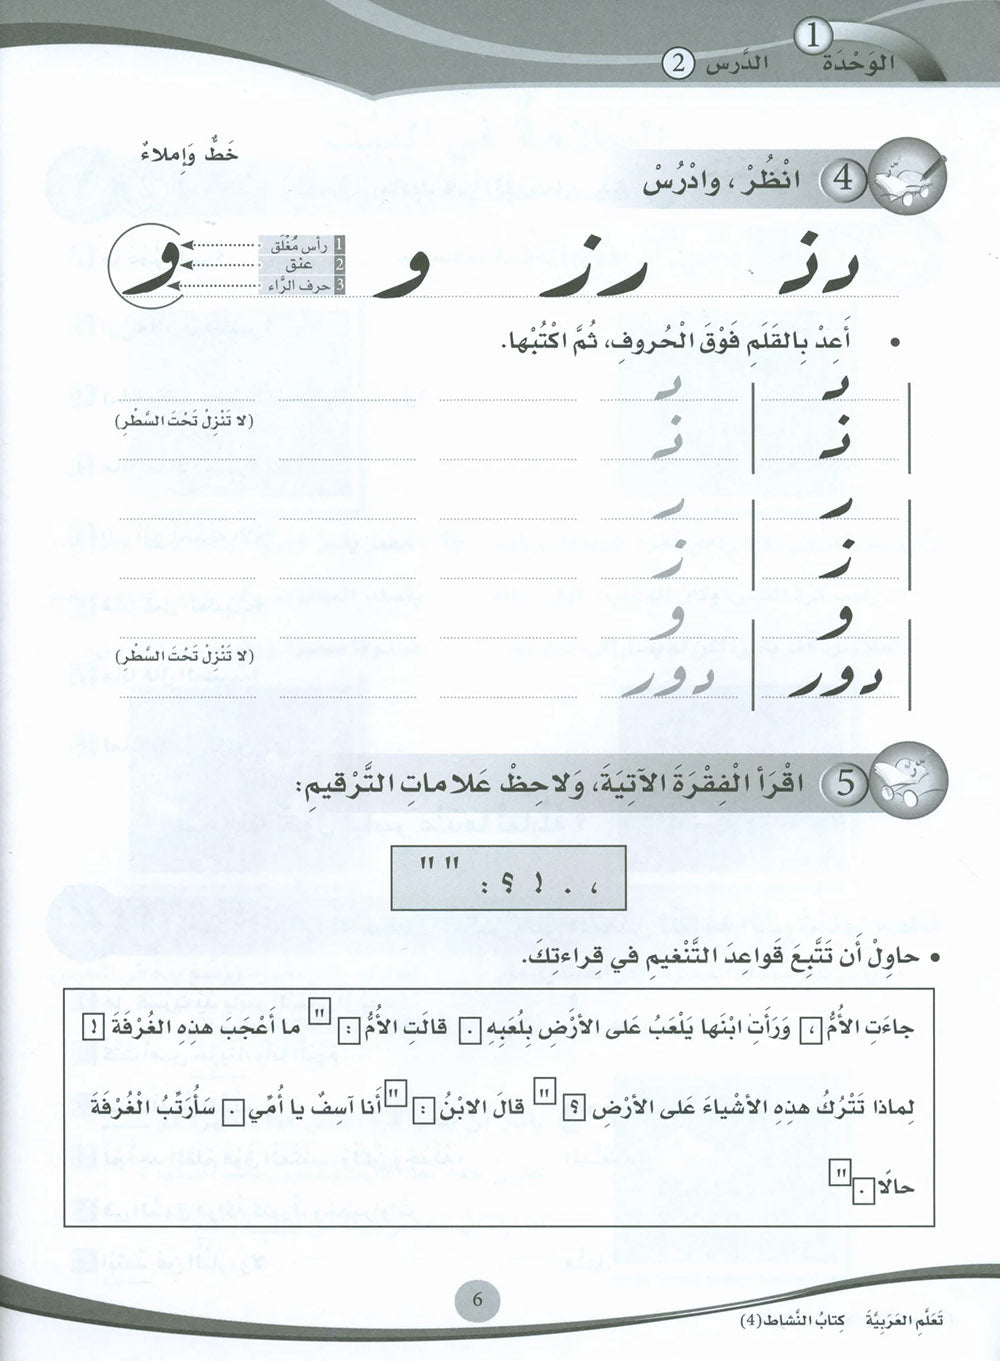 الوَحْدَة 1
الدَّرس 2
4 انْظُرْ ، وادْرُسْ
خَطٌّ وَإملاءٌ
د ذ ر ز و و
1 رأس مُغْلَق
2 عنق
3 حرف الرَّاء
• أَعِدْ بِالقَلَمِ فَوْقَ الْحُروفِ، ثُمَّ اكْتُبْها.
د د
ذ ذ (لا تَنْزِلْ تَحْتَ السَّطْرِ)
ر ر
ز ز
و و
دور دور (لا تَنْزِلْ تَحْتَ السَّطْرِ)
5 اقْرَأ الْفِقْرَةَ الآتِيَةَ، وَلاحِظْ عَلاماتِ التَّرْقيمِ:
، . ! ؟ : " "
• حاوِلْ أَن تَتَّبِعَ قَواعِدَ التَّنْغيمِ في قِراءتِكَ.
جاءَتِ الأُمُّ ، وَرَأَتِ ابْنَها يَلْعَبُ عَلى الأرْضِ بِلُعَبِهِ . قالَتِ الأُمُّ : " ما أَعْجَبَ هذِهِ الغُرْفَةَ !
لِماذا تَتْرُكُ هذِهِ الأشْياءَ عَلى الأرْضِ ؟ " قالَ الابْنُ : " أَنا آسفٌ يا أُمِّي . سَأُرَتِّبُ الْغُرْفَةَ
حالًا . "
6
تَعَلَّمِ العَرَبِيَّةَ كِتابُ النَّشاط (4)